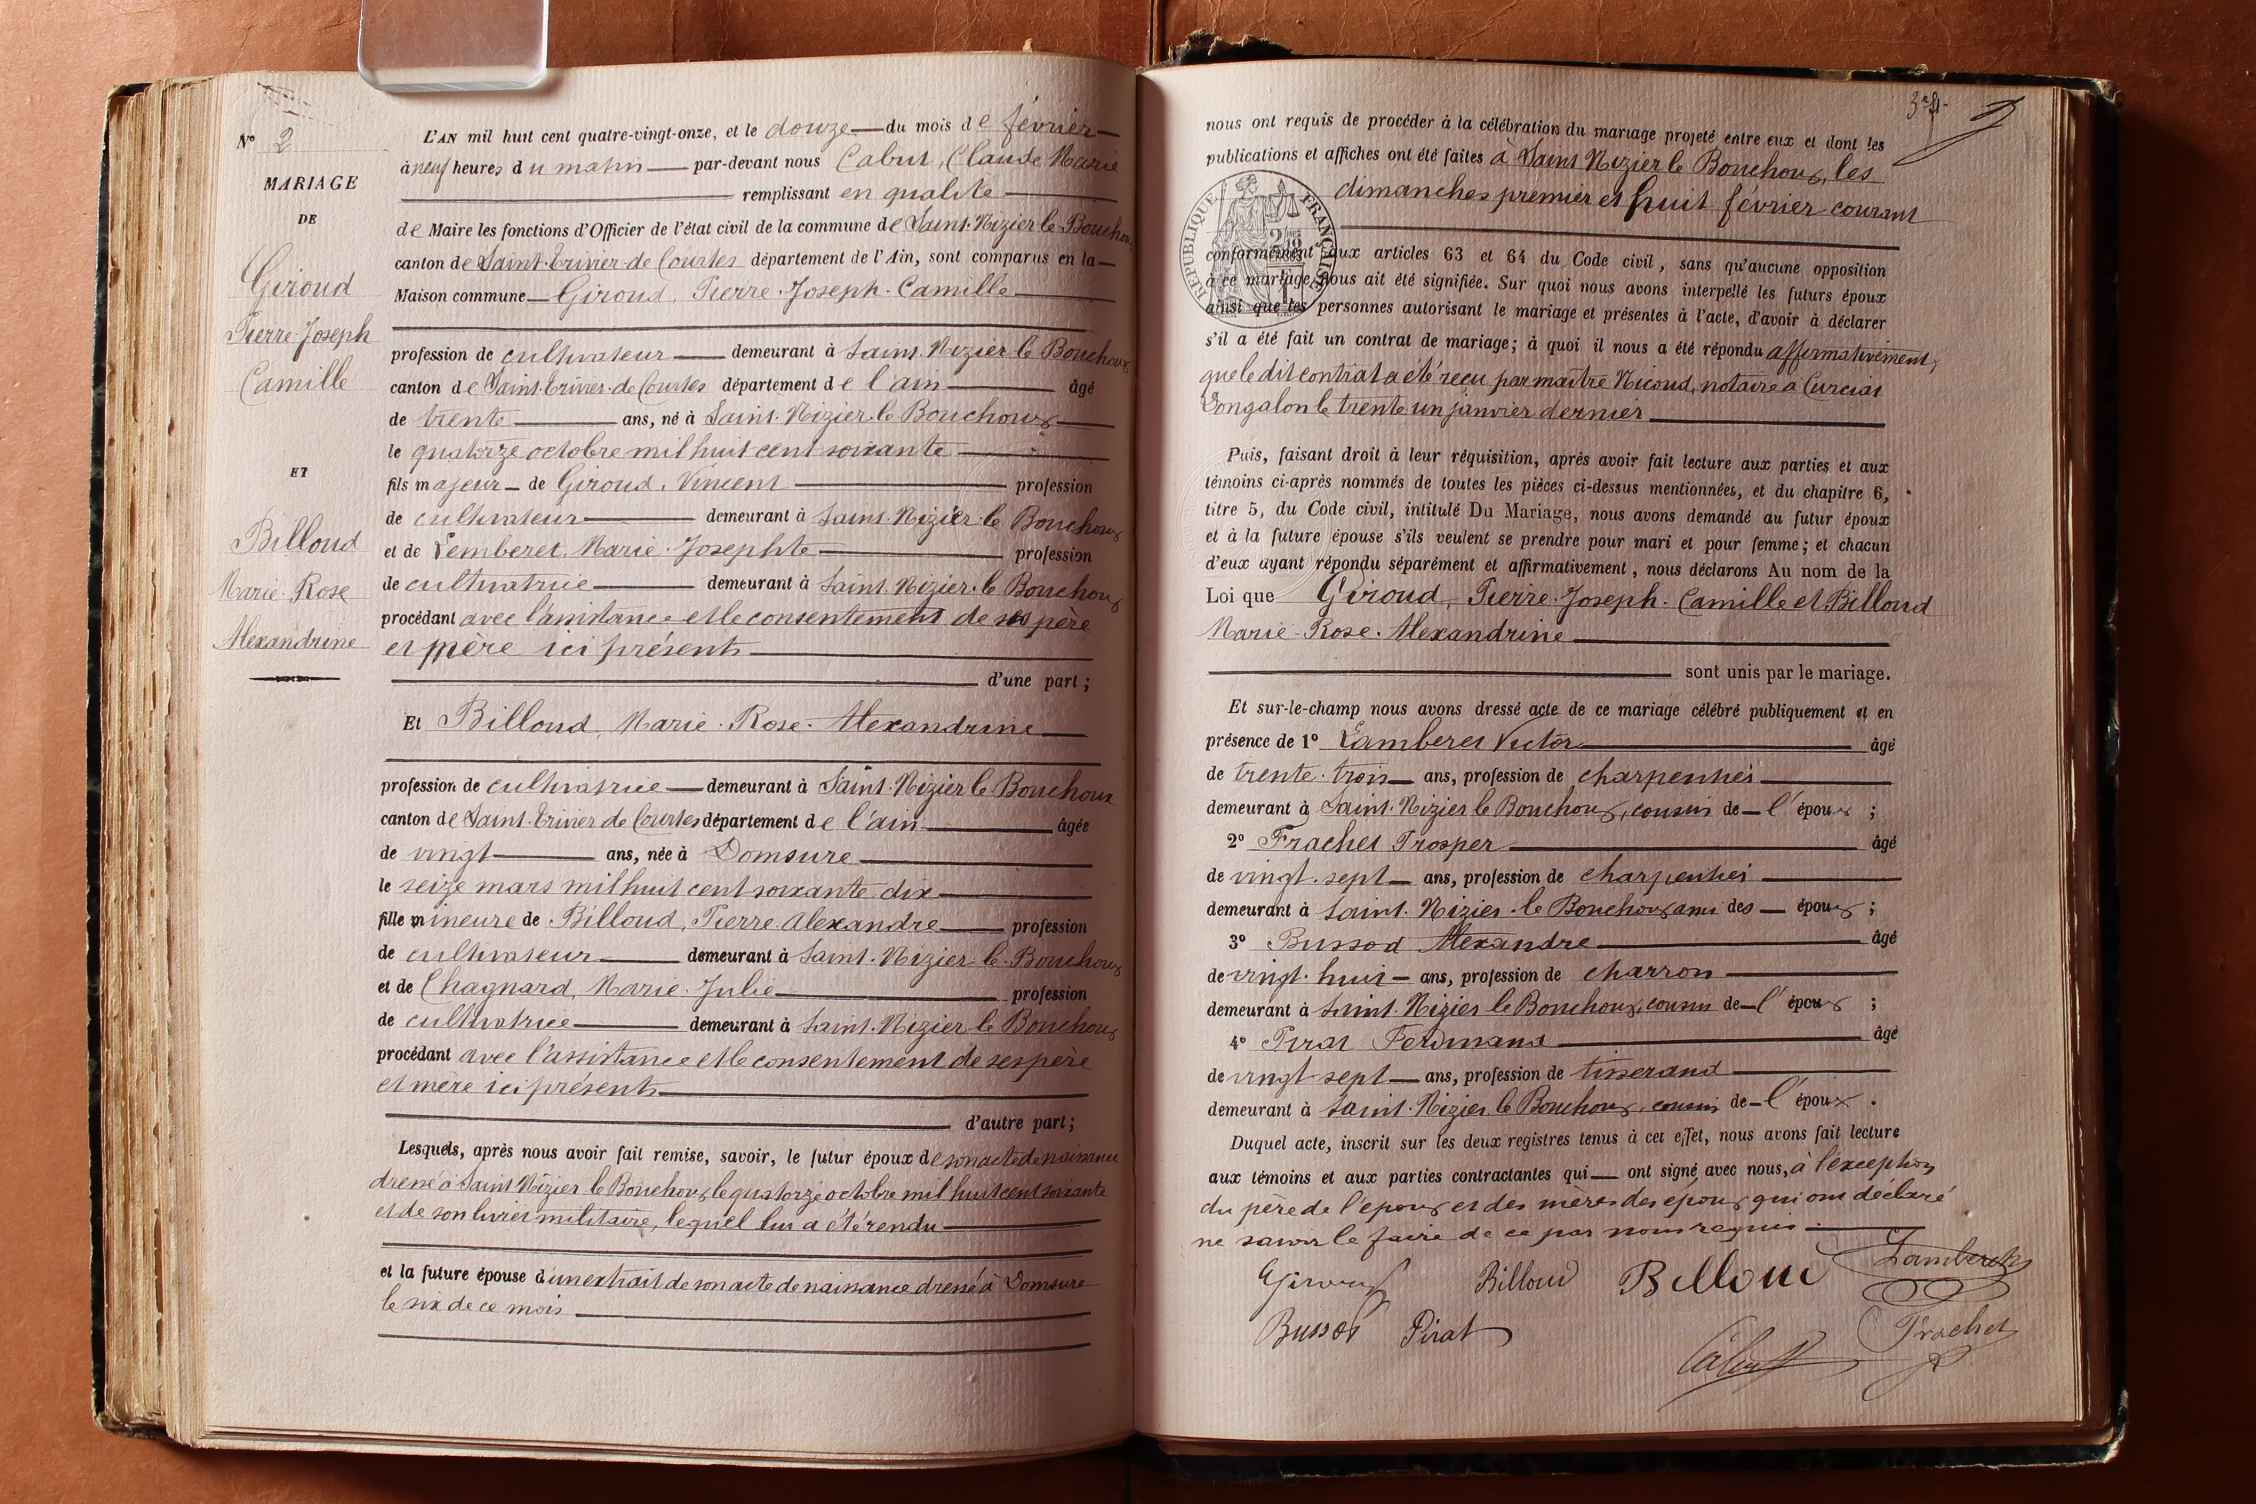 N° 2
MARIAGE
DE
Giroud
Pierre-Joseph
Camille
ET
Billoud
Marie-Rose
Alexandrine
L'AN mil huit cent quatre-vingt-onze, et le douze du mois de février
à neuf heures du matin par-devant nous Cabut, Claude Marie
remplissant en qualité
de Maire les fonctions d'Officier de l'état civil de la commune de Saint-Nizier le Bouchoux
canton de Saint-Trivier-de Courtes département de l'Ain, sont comparus en la
Maison commune Giroud, Pierre-Joseph-Camille
profession de cultivateur demeurant à Saint-Nizier le Bouchoux
canton de Saint-Trivier-de Courtes département de l'ain âgé
de trente ans, né à Saint-Nizier-le Bouchoux
le quatorze octobre mil huit cent soixante
fils majeur de Giroud, Vincent profession
de cultivateur demeurant à Saint-Nizier-le Bouchoux
et de Lemberet, Marie-Josephte profession
de cultivatrice demeurant à Saint-Nizier-le Bouchoux
procédant avec l'assistance et le consentement de ses père
et mère ici présents
d'une part ;
Et Billoud, Marie-Rose-Alexandrine
profession de cultivatrice demeurant à Saint-Nizier le Bouchoux
canton de Saint-Trivier de Courtes département de l'ain âgée
de vingt ans, née à Domsure
le seize mars mil huit cent soixante-dix
fille mineure de Billoud, Pierre Alexandre profession
de cultivateur demeurant à Saint-Nizier-le-Bouchoux
et de Chagnard, Marie-Julie profession
de cultivatrice demeurant à Saint-Nizier le Bouchoux
procédant avec l'assistance et le consentement de ses père
et mère ici présents
d'autre part ;
Lesquels, après nous avoir fait remise, savoir, le futur époux de son acte de naissance
dressé à Saint Nizier le Bouchoux le quatorze octobre mil huit cent soixante
et de son livret militaire, lequel lui a été rendu
et la future épouse d'un extrait de son acte de naissance dressé à Domsure
le six de ce mois
nous ont requis de procéder à la célébration du mariage projeté entre eux et dont les
publications et affiches ont été faites à Saint Nizier le Bouchoux, les
dimanches premier et huit février courant
RÉPUBLIQUE FRANÇAISE
conformément aux articles 63 et 64 du Code civil, sans qu'aucune opposition
à ce mariage nous ait été signifiée. Sur quoi nous avons interpellé les futurs époux
ainsi que les personnes autorisant le mariage et présentes à l'acte, d'avoir à déclarer
s'il a été fait un contrat de mariage ; à quoi il nous a été répondu affirmativement,
que le dit contrat a été reçu par maître Nicoud, notaire à Curciat
Dongalon le trente un janvier dernier
Puis, faisant droit à leur réquisition, après avoir fait lecture aux parties et aux
témoins ci-après nommés de toutes les pièces ci-dessus mentionnées, et du chapitre 6,
titre 5, du Code civil, intitulé Du Mariage, nous avons demandé au futur époux
et à la future épouse s'ils veulent se prendre pour mari et pour femme ; et chacun
d'eux ayant répondu séparément et affirmativement, nous déclarons Au nom de la
Loi que Giroud, Pierre-Joseph-Camille et Billoud
Marie-Rose-Alexandrine
sont unis par le mariage.
Et sur-le-champ nous avons dressé acte de ce mariage célébré publiquement et en
présence de 1° Lamberet Victor âgé
de trente-trois ans, profession de charpentier
demeurant à Saint-Nizier le Bouchoux, cousin de l'époux ;
2° Frachet Prosper âgé
de vingt-sept ans, profession de charpentier
demeurant à Saint-Nizier-le Bouchoux ami des époux ;
3° Bussod Alexandre âgé
de vingt-huit ans, profession de charron
demeurant à Saint-Nizier le Bouchoux, cousin de l'époux ;
4° Pirat Ferdinand âgé
de vingt sept ans, profession de tisserand
demeurant à Saint-Nizier le Bouchoux, cousin de l'époux.
Duquel acte, inscrit sur les deux registres tenus à cet effet, nous avons fait lecture
aux témoins et aux parties contractantes qui ont signé avec nous, à l'exception
du père de l'époux et des mères des époux qui ont déclaré
ne savoir le faire de ce par nous requis.
Giroud Billoud Billoud Lamberet
Bussod Pirat Cabut Frachet